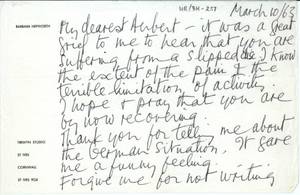 HR/BH-257
March 10/63
BARBARA HEPWORTH
My dearest Herbert - it was a great
grief to me to hear that you are
suffering from a slipped disc. I know
the extent of the pain & the
terrible limitation of activity.
I hope & pray that you are
by now recovering.
Thank you for telling me about
the German situation. It gave
me a funny feeling.
Forgive me for not writing
TREWYN STUDIO
ST IVES
CORNWALL
ST IVES